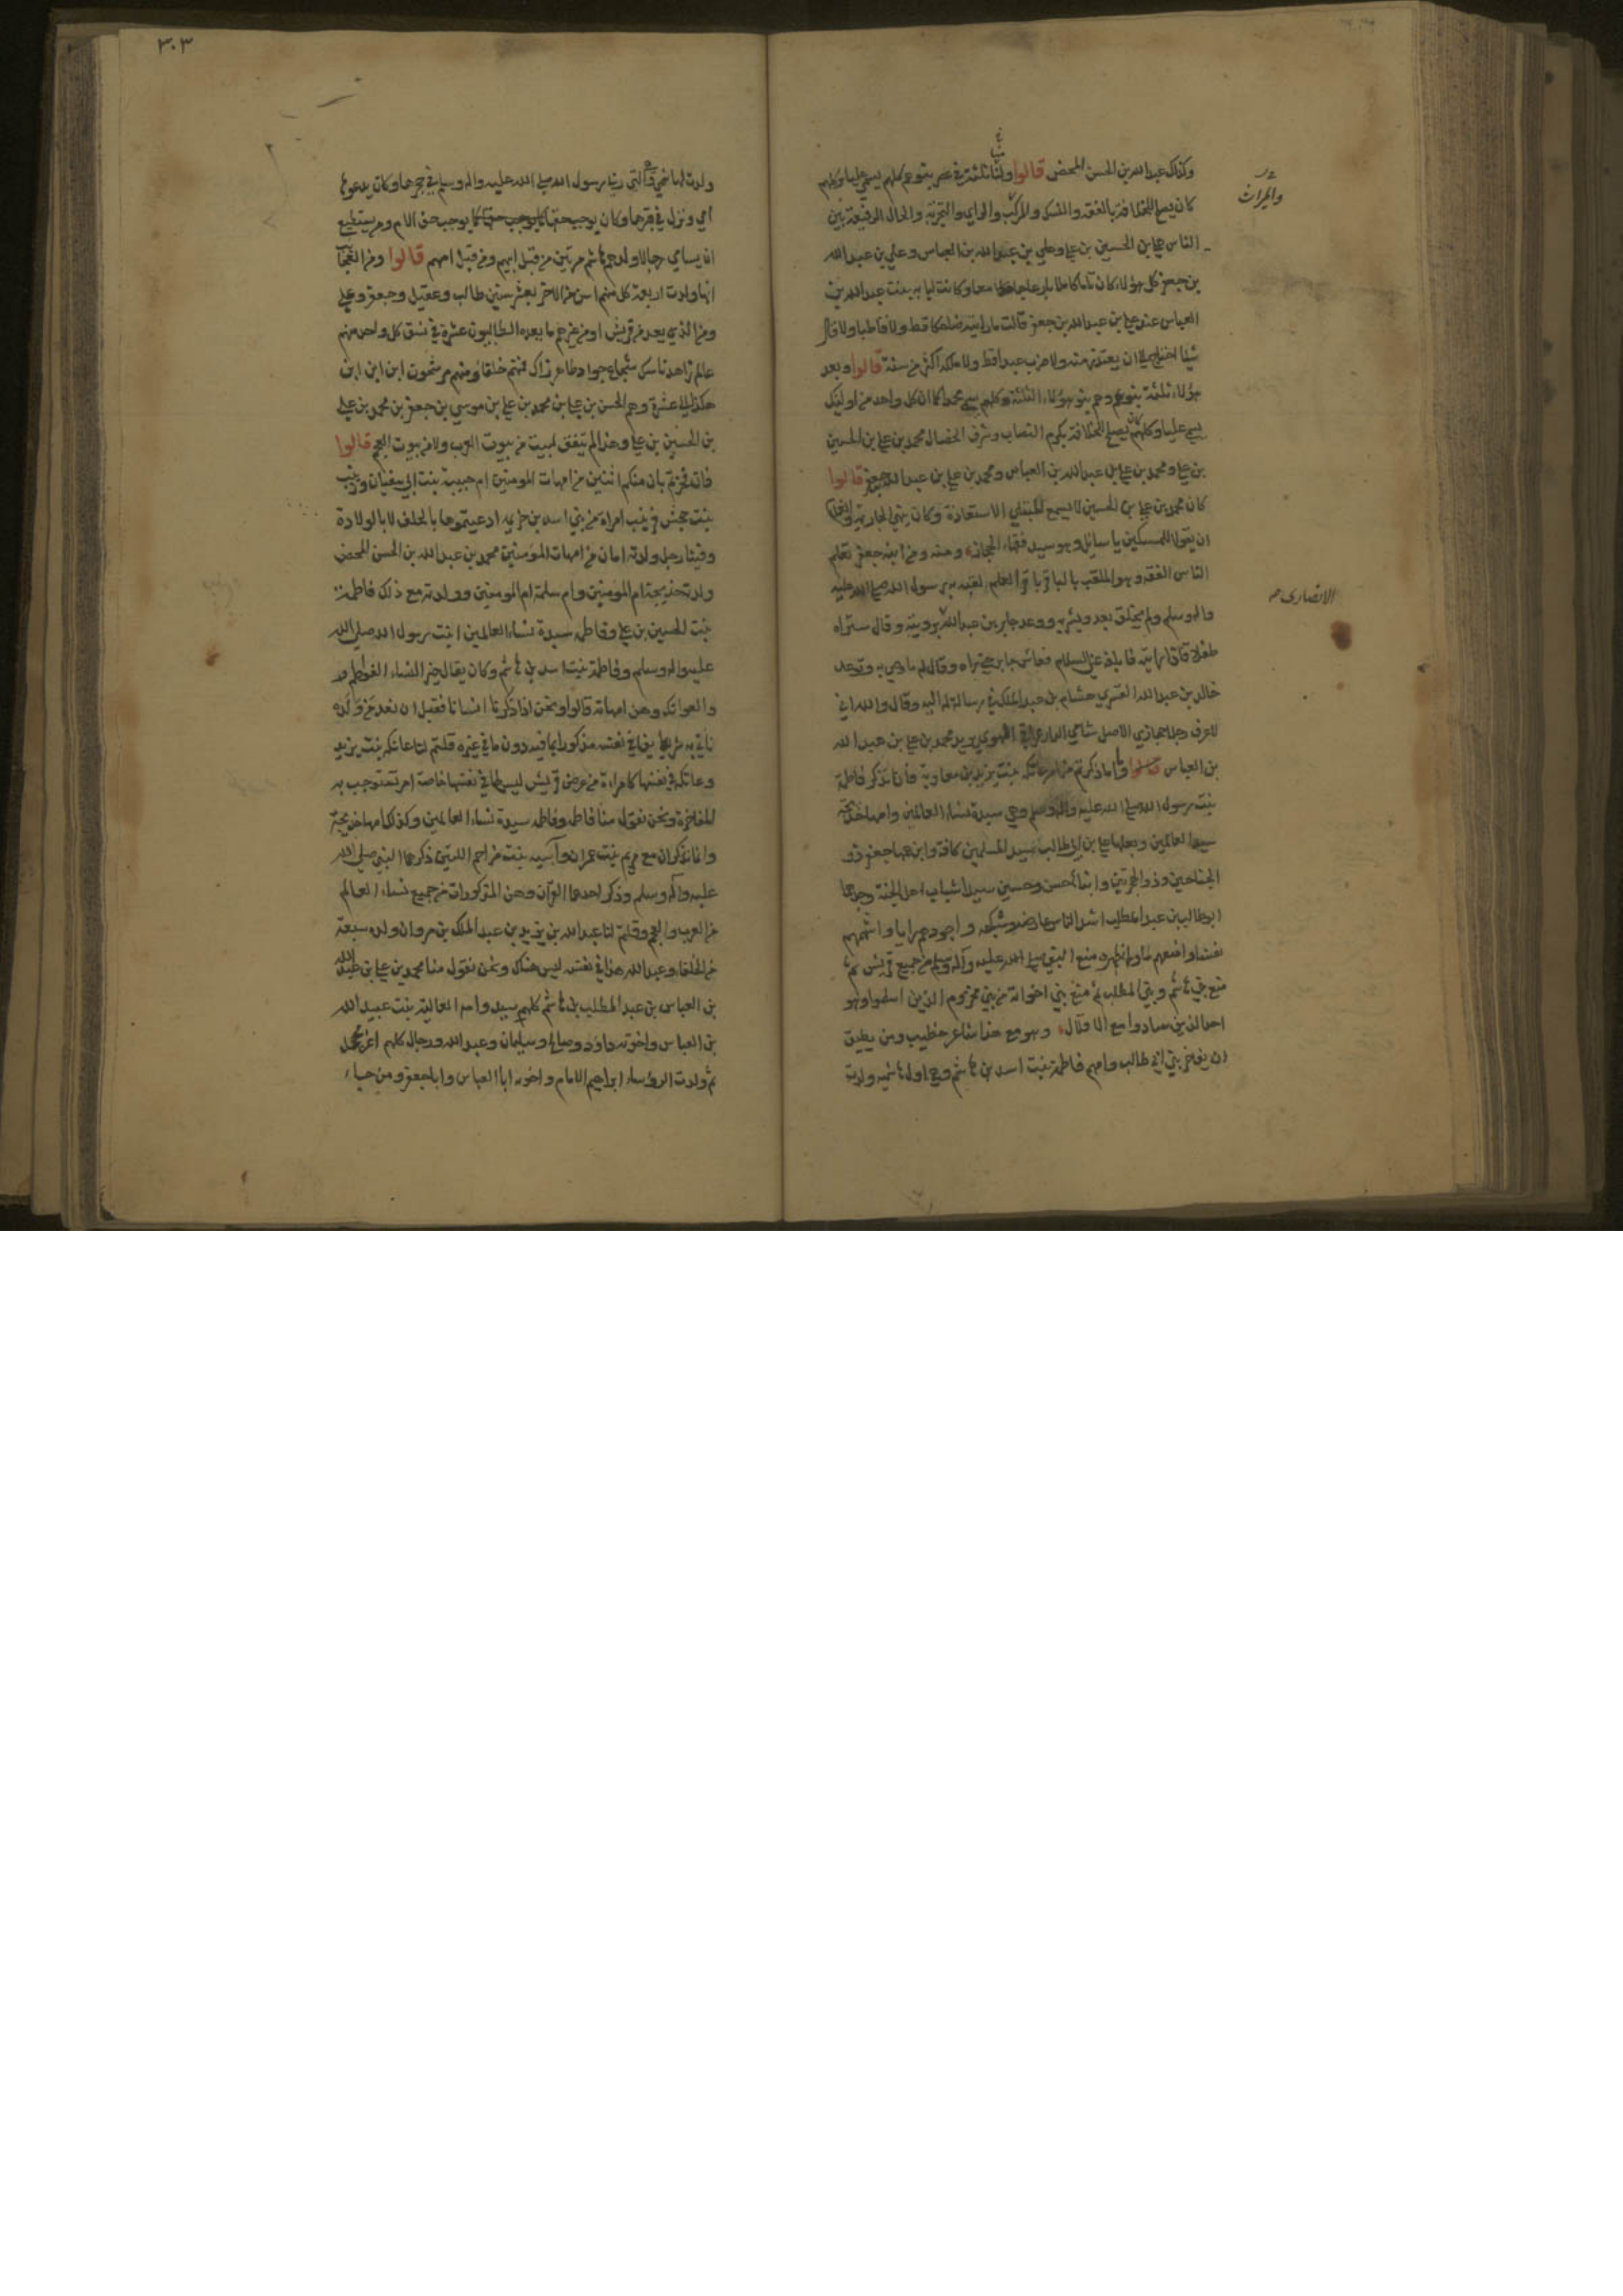 وكذلك عبد الله بن الحسن المحض قالوا ولنا ثلثة في عصر بنو عم كلهم يسمي عليا وكلهم
كان يصلح للخلافة بالفقه والنسك والمركب والراي والتجربة والحال الرفيعة بين
الناس علي بن الحسين بن علي وعلي بن عبد الله بن العباس وعلي بن عبد الله
بن جعفر كل هؤلاء كان تاما كاملا بارعا جامعا وكانت لبابه بنت عبد الله بن
العباس عند علي بن عبد الله بن جعفر قالت ما رايته ضاحكا قط ولا قاطبا ولا قال
شيئا احتاج الى ان يعتذر منه ولا ضرب عبدا قط ولا ملكه اكثر من سنة قالوا وبعد
هؤلاء ثلثة بنو عم وهم بنو هؤلاء الثلثة وكلهم يسمي محمدا كما ان كل واحد من اوليك
يسمي عليا وكلهم كان يصلح للخلافة بكرم النصاب وشرف الخصال محمد بن علي بن الحسين
بن علي ومحمد بن علي بن عبد الله بن العباس ومحمد بن علي بن عبد الله بن جعفر قالوا
كان محمد بن علي بن الحسين لا يسمع المبتلي الاستعاذة وكان ينهي الجارية والغلام
ان يقولا للمسكين يا سايل وهو سيد فقهاء الحجاز ومنه ومن ابنه جعفر تعلم
الناس الفقه وهو الملقب بالباقر باقر العلم لقبه به رسول الله صلى الله عليه
واله وسلم ولم يخلق بعد وبشر به ووعد جابر بن عبد الله برويته وقال ستراه
طفلا فاذا رايته فابلغه عني السلام فعاش جابر حتى راه وقال له ما وصي به وتوعد
خالد بن عبد الله القسري هشام بن عبد الملك في رسالة له اليه وقال والله اني
لاعرف رجلا حجازي الاصل شامي الدار عراقي الهوى يريد محمد بن علي بن عبد الله
بن العباس قالوا واما ما ذكرتم من امر عاتكه بنت يزيد بن معاوية فانا نذكر فاطمة
بنت رسول الله صلى الله عليه واله وسلم وهي سيدة نساء العالمين وامها خديجة
سيدة العالمين وبعلها علي بن ابي طالب سيد المسلمين كافة وابن عمها جعفر ذو
الجناحين وذو الهجرتين وابناها حسن وحسين سيدا شباب اهل الجنة وجدهما
ابو طالب بن عبد المطلب اشد الناس عارضة وشكيمة واجودهم رايا واشهمهم
نفسا وامنعهم لما وراء ظهره منع النبي صلى الله عليه وآله وسلم من جميع قريش ثم
منع بني هاشم وبني المطلب ثم منع بني اخواته من بني مخزوم الذين اسلموا وهو
احد الذين سادوا مع الاقلال وهو مع هذا شاعر خطيب ومن يطيق
ان يفاخر بني ابي طالب وامهم فاطمة بنت اسد بن هاشم وهي اول هاشميه ولدت
والميراث
الانصاري
٣٠٣
ولدت لهاشمي وهي التي ربا رسول الله صلى الله عليه واله وسلم في حجرها وكان يدعوها
امي ونزل في قبرها وكان يوجب حقها كما يوجب حق الام ومن يستطيع
ان يسامي رجالا ولدهم هاشم مرتين من قبل ابيهم ومن قبل امهم قالوا ومن العجايب
انها ولدت اربعة كل منهم اسن من الاخر بعشر سنين طالب وعقيل وجعفر وعلي
ومن الذي يعد من قريش او من غيرهم ما يعده الطالبيون عشرة في نسق كل واحد منهم
عالم زاهد ناسك شجاع جواد طاهر زاك فمنهم خلفا ومنهم مرشحون ابن ابن ابن
هكذا الى عشرة وهم الحسن بن علي بن محمد بن علي بن موسي بن جعفر بن محمد بن علي
بن الحسين بن علي وهذا لم يتفق لبيت من بيوت العرب ولا من بيوت العجم قالوا
فان فخرتم بان منكم اثنتين من امهات المومنين ام حبيبة بنت ابي سفيان وزينب
بنت جحش فزينب امراة من بني اسد بن خزيمه ادعيتموها بالحلف لا بالولادة
وفينا رجل ولدته امان من امهات المؤمنين محمد بن عبد الله بن الحسن المحض
ولدته خديجة ام المومنين وام سلمة ام المومنين وولدته مع ذلك فاطمة
بنت الحسين بن علي وفاطمه سيدة نساء العالمين ابنت رسول الله صلى الله
عليه واله وسلم وفاطمة بنت اسد بن هاشم وكان يقال خير النساء الفواطم
والعواتك وهن امهاته قالوا ونحن اذا ذكرنا انسانا فقبل ان نعد من ولده
ناتي به شريفا في نفسه مذكورا بما فيه دون ما في غيره قلتم لنا عاتكه بنت يزيد
وعاتكه في نفسها كامراة من عرض قريش ليس لها في نفسها خاصة امر تستوجب به
المفاخرة ونحن نقول منا فاطمه وفاطمه سيدة نساء العالمين وكذلك امها خديجة
وانما تذكران مع مريم بنت عمران وآسيه بنت مزاحم اللتين ذكرهما النبي صلى الله
عليه واله وسلم وذكر احدهما القران وهن المذكورات من جميع نساء العالم
من العرب والعجم وقلتم لنا عبد الله بن يزيد بن عبد الملك بن مروان ولده سبعة
من الخلفاء وعبد الله هذا في نفسه ليس هناك ونحن نقول منا محمد بن علي بن عبد الله
بن العباس بن عبد المطلب بن هاشم كلهم سيد وامه العالية بنت عبيد الله
بن العباس واخوته داود وصالح وسليمان وعبد الله رجال كلهم اغر محجل
ثم ولدت الروساء ابراهيم الامام واخويه ابا العباس وابا جعفر ومن جاء